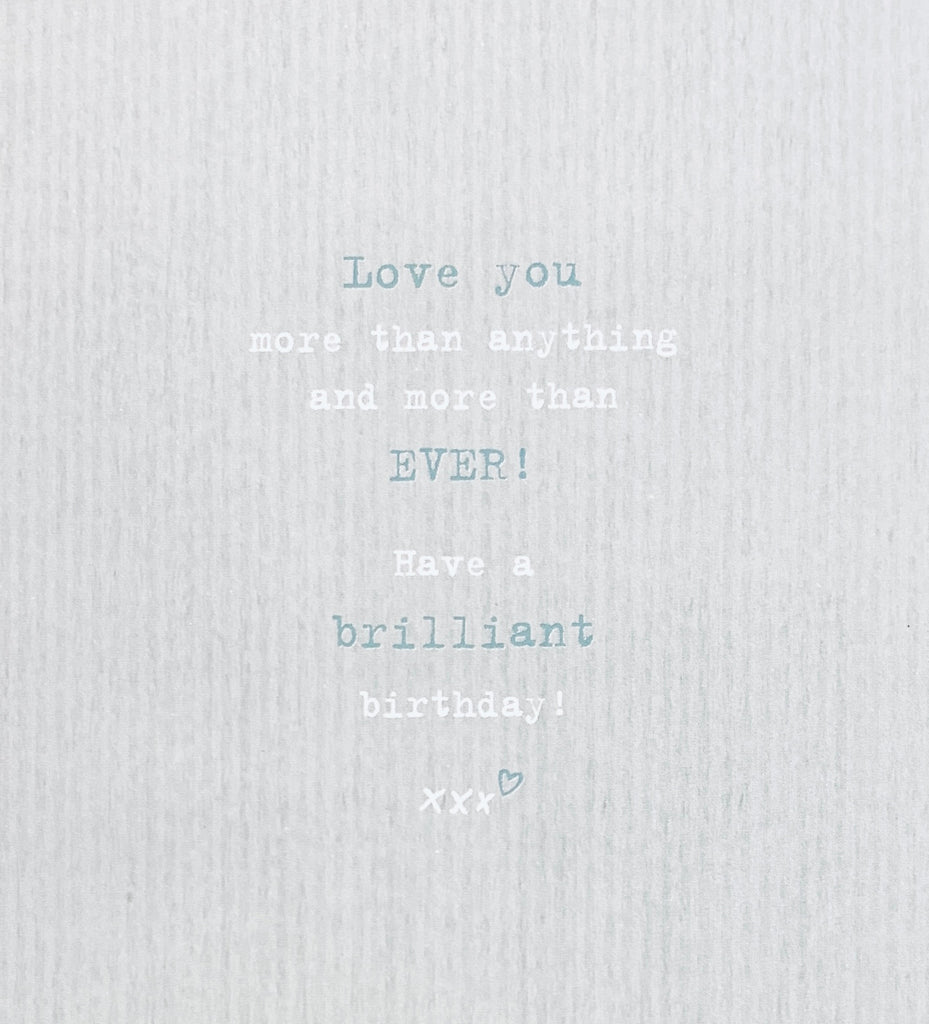 Love you
more than anything
and more than
EVER!
Have a
brilliant
birthday!
xxx